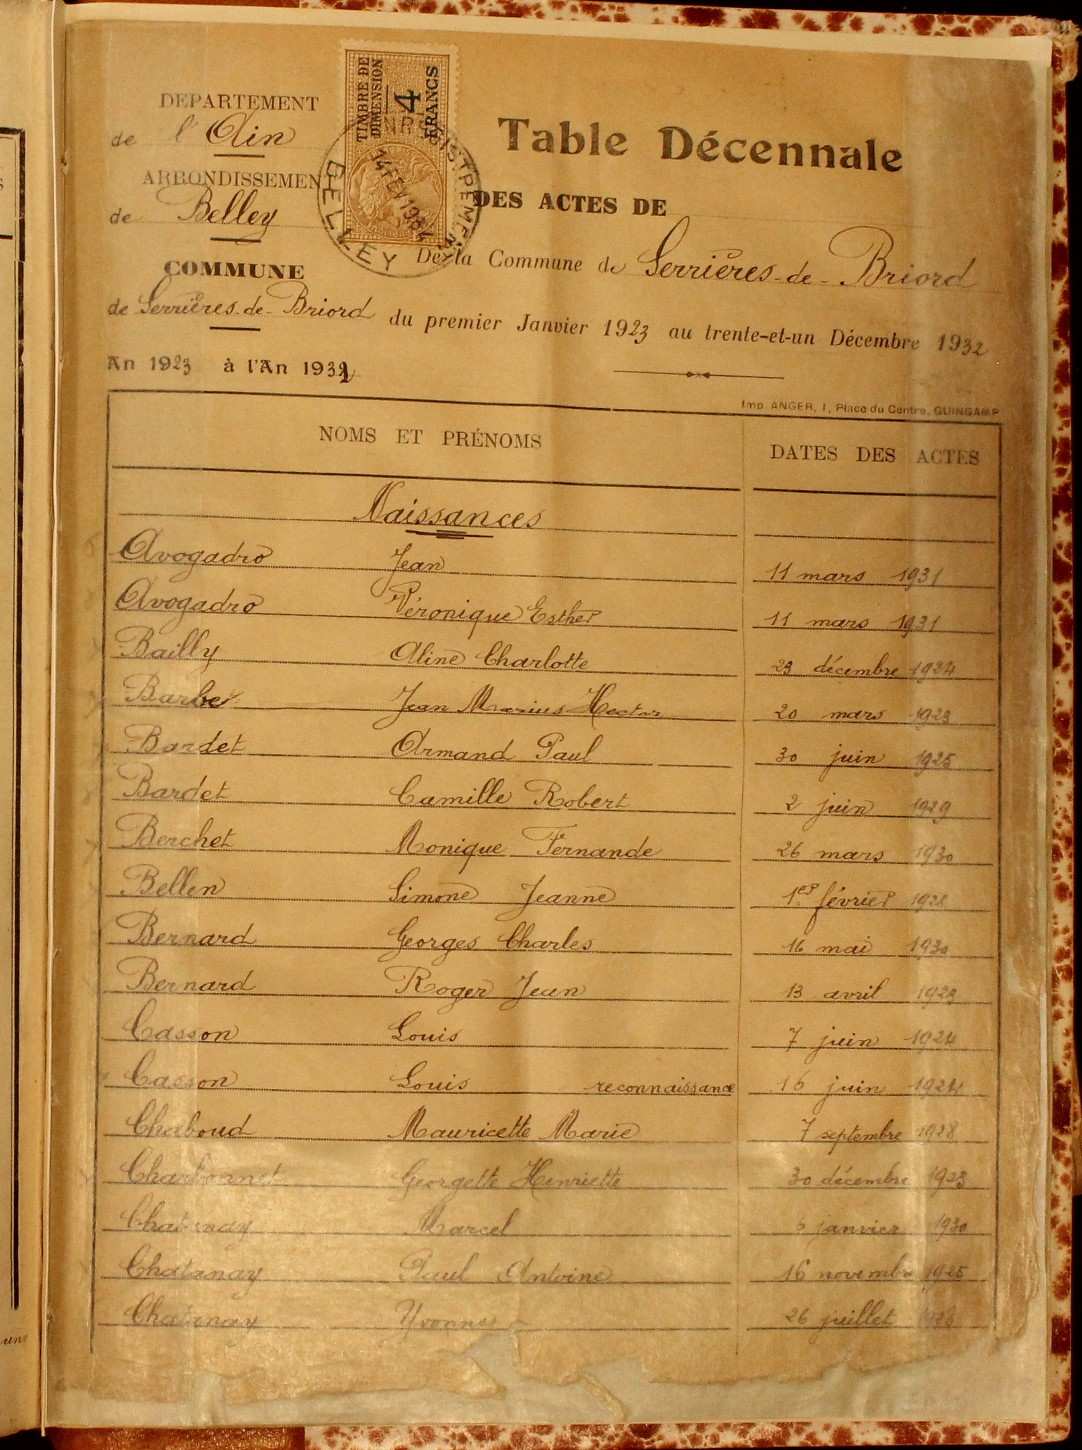 DEPARTEMENT
de l'Ain
ARRONDISSEMENT
de Belley
COMMUNE
de Serrières-de-Briord
An 1923 à l'An 1932
TIMBRE DE DIMENSION
4 FRANCS
ENREGISTREMENT
14 FEV 1934
BELLEY
Table Décennale
DES ACTES DE
De la Commune de Serrières-de-Briord
du premier Janvier 1923 au trente-et-un Décembre 1932
Imp. ANGER, 1, Place du Centre, GUINGAMP
NOMS ET PRÉNOMS DATES DES ACTES
Naissances
Avogadro Jean 11 mars 1931
Avogadro Véronique Esther 11 mars 1931
Bailly Aline Charlotte 23 décembre 1924
Barbe Jean Marius Hector 20 mars 1923
Bardet Armand Paul 30 juin 1925
Bardet Camille Robert 2 juin 1929
Berchet Monique Fernande 26 mars 1930
Bellen Simone Jeanne 1er février 1928
Bernard Georges Charles 16 mai 1930
Bernard Roger Jean 13 avril 1923
Casson Louis 7 juin 1924
Casson Louis reconnaissance 16 juin 1924
Chaboud Mauricette Marie 7 septembre 1928
Charbonnet Georgette Henriette 30 décembre 1923
Chatanay Marcel 6 janvier 1930
Chatanay Paul Antoine 16 novembre 1925
Chatanay Yvonne 26 juillet
une